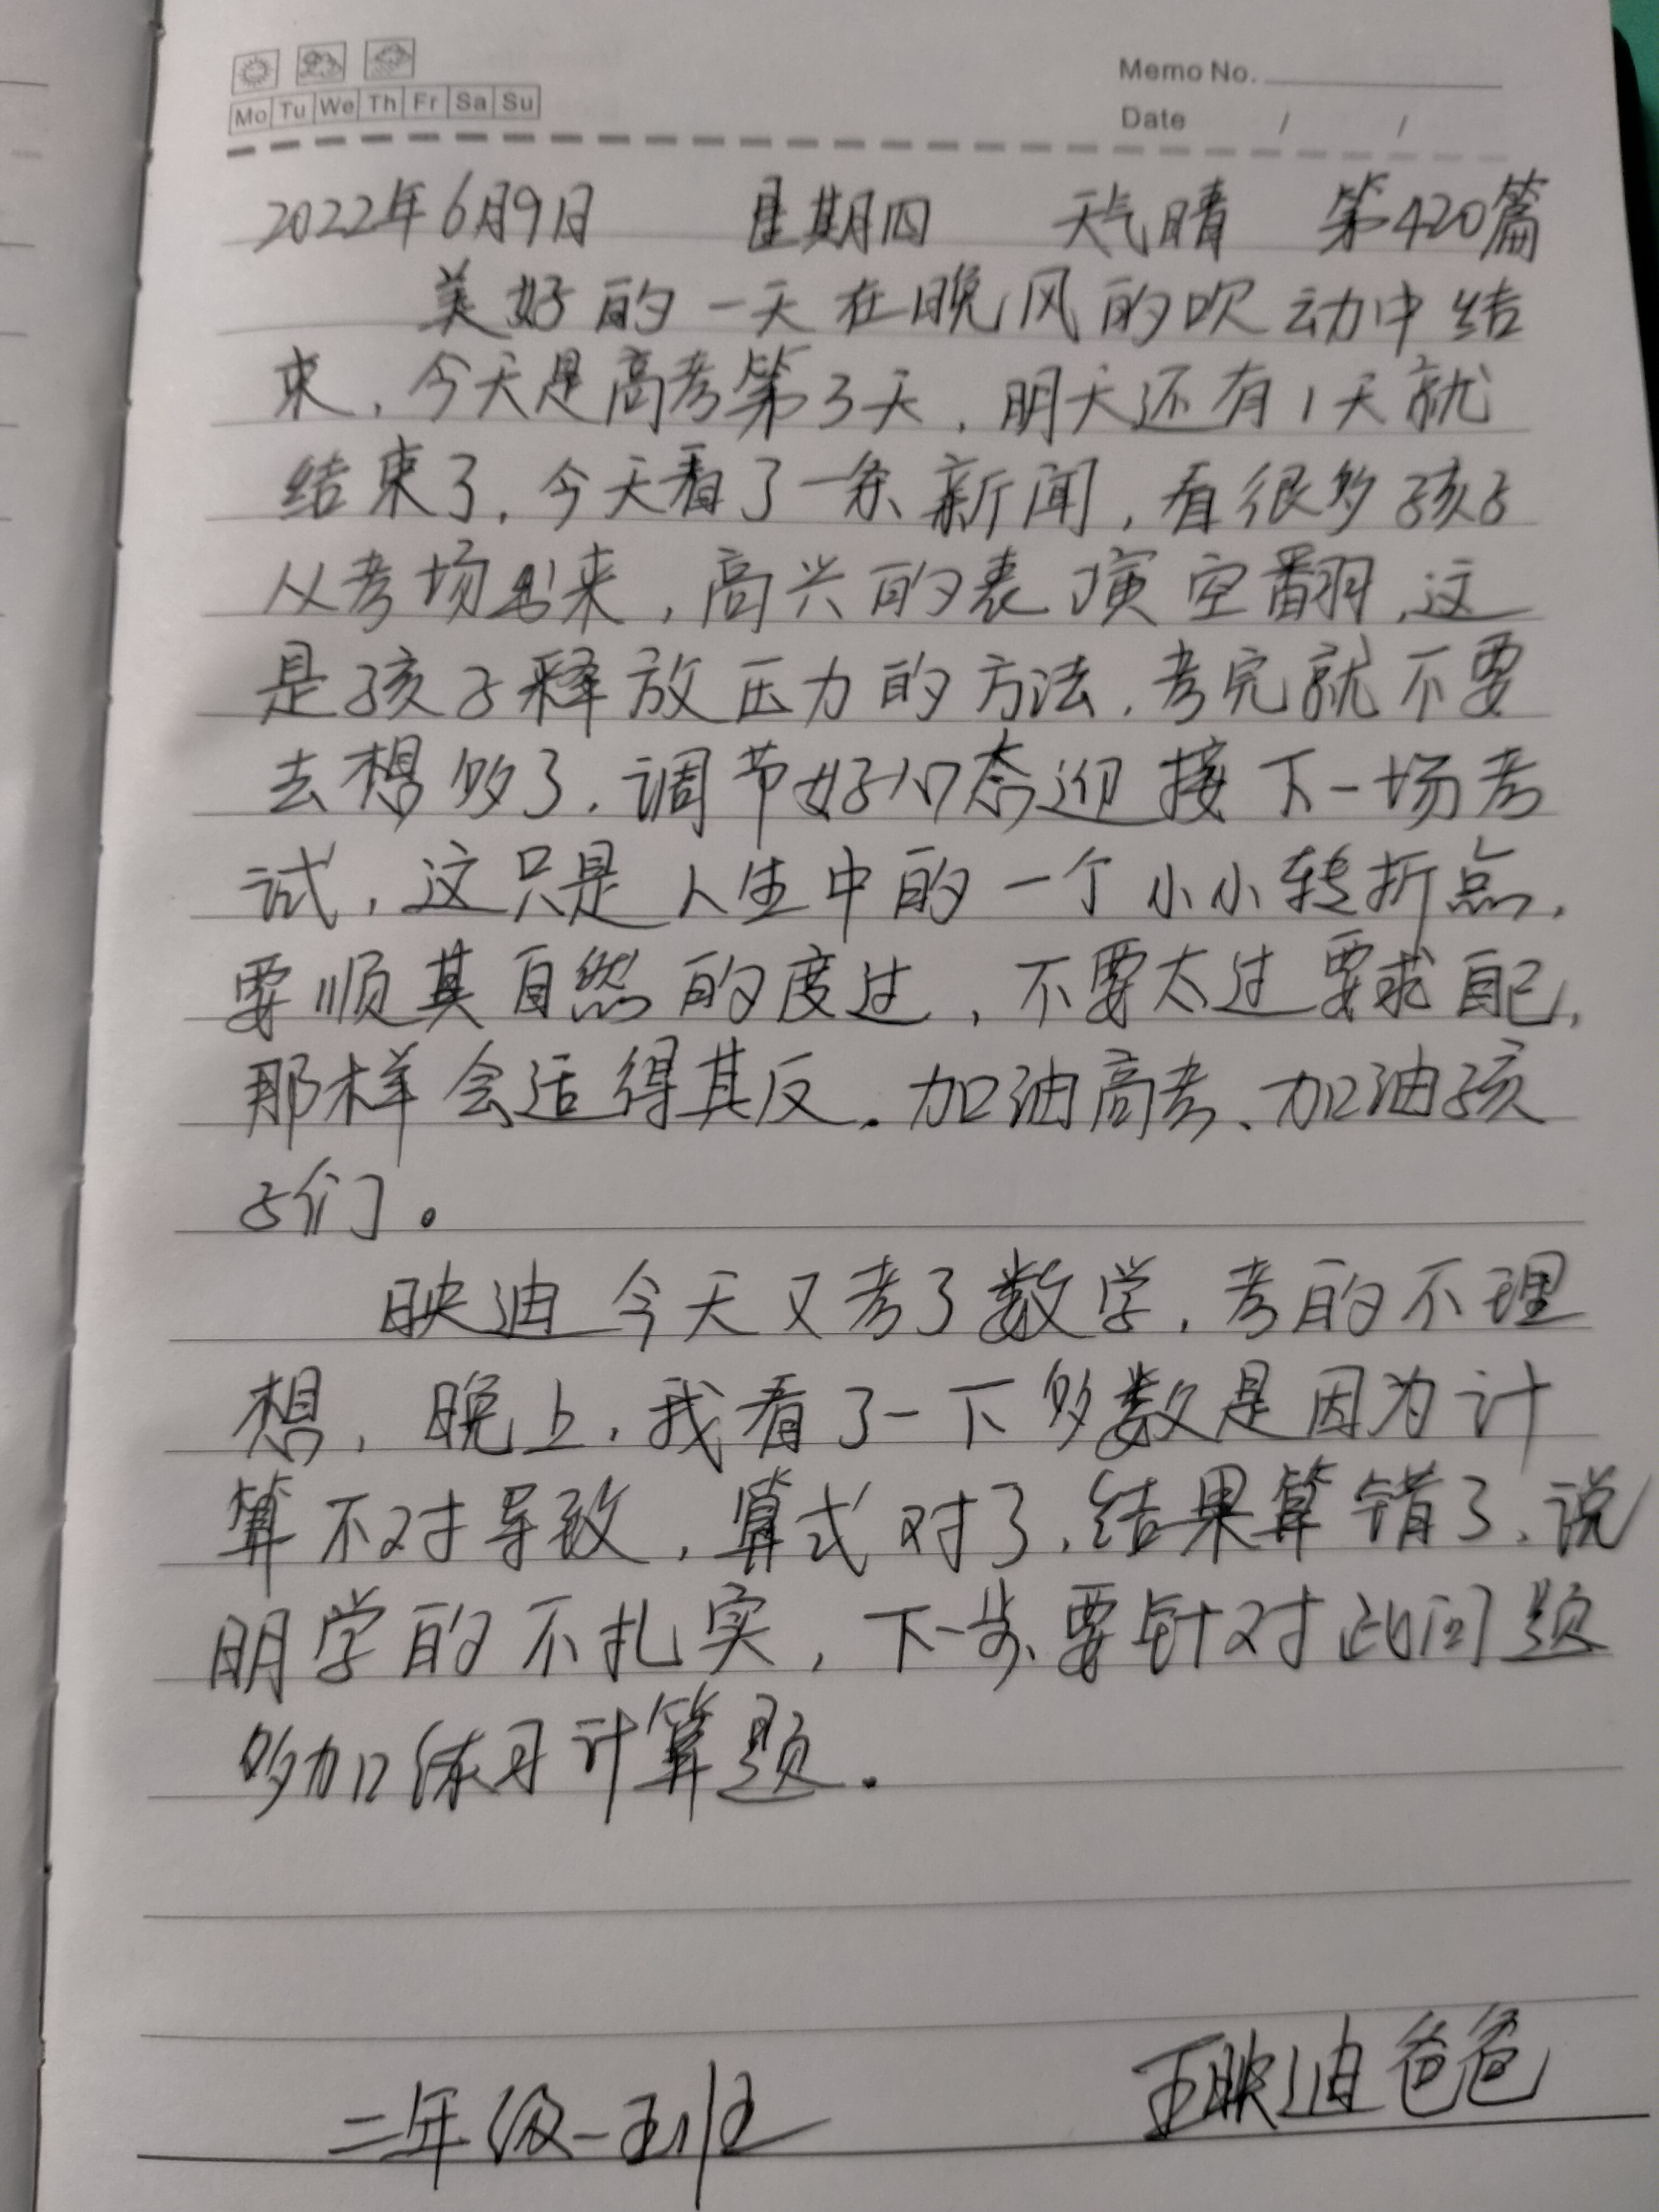 Memo No.
Mo Tu We Th Fr Sa Su
Date / /
2022年6月9日 星期四 天气晴 第420篇
美好的一天在晚风的吹动中结
束,今天是高考第3天,明天还有1天就
结束了,今天看了一条新闻,看很多孩子
从考场出来,高兴的表演空翻,这
是孩子释放压力的方法,考完就不要
去想多了,调节好心态迎接下一场考
试,这只是人生中的一个小小转折点,
要顺其自然的度过,不要太过要求自己,
那样会适得其反。加油高考、加油孩
子们。
映迪今天又考了数学,考的不理
想,晚上,我看了一下多数是因为计
算不对导致,算式对了,结果算错了,说
明学的不扎实,下一步要针对此问题
多加练习计算题。
王映迪爸爸
二年级一班